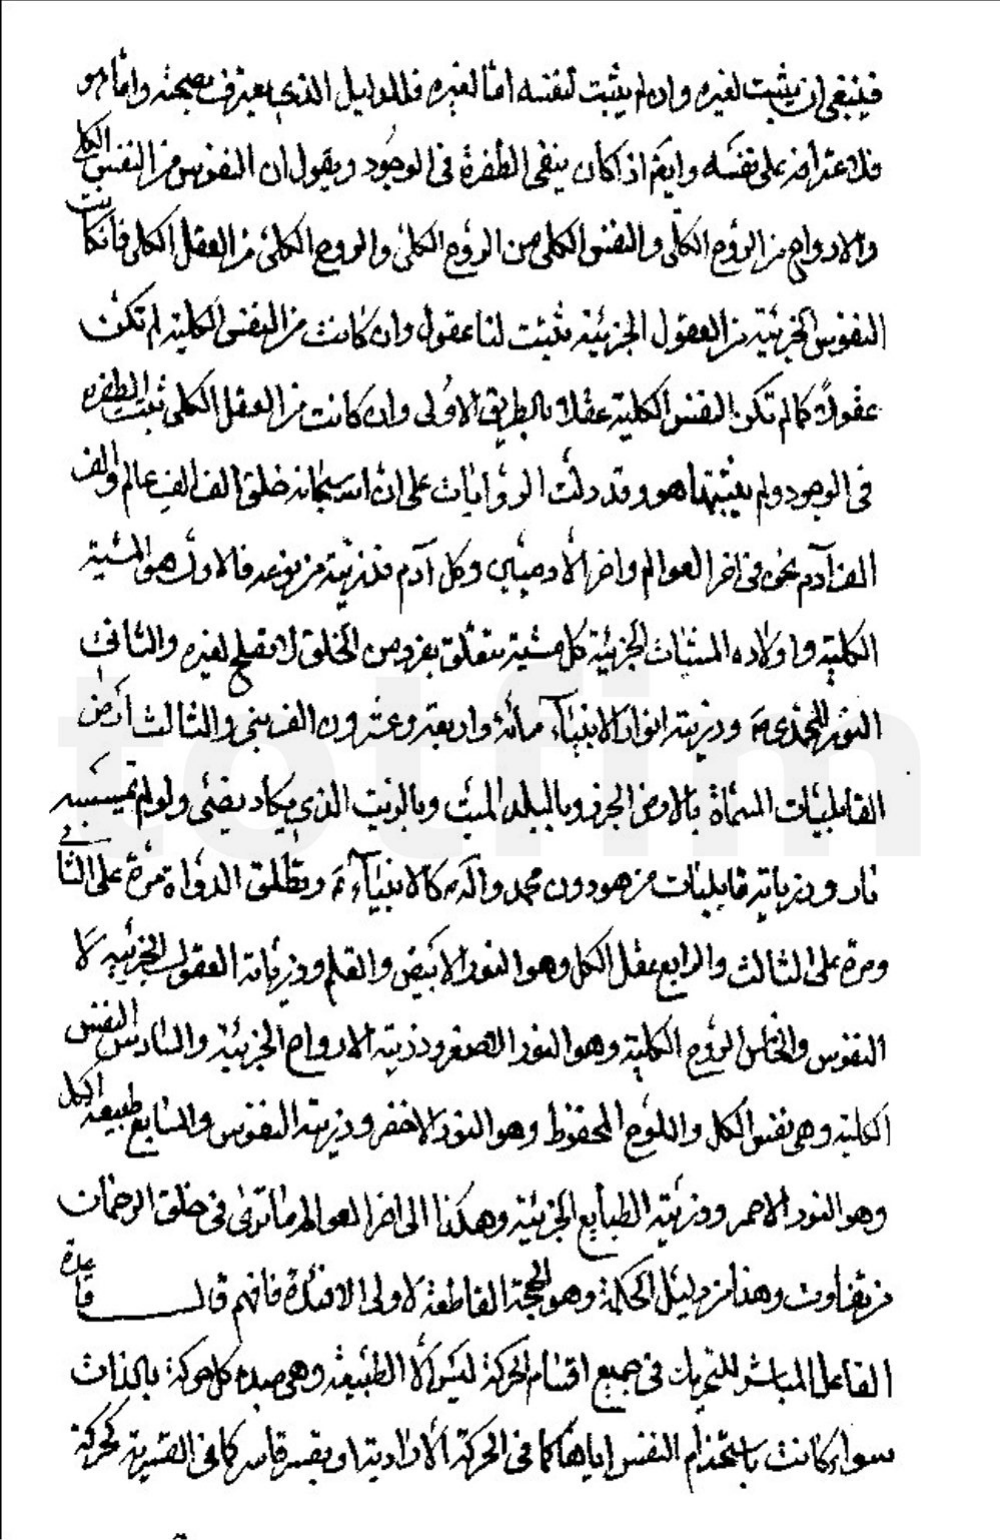 فينبغى ان يثبت لغيره وان لم يثبت لنفسه امّا لغيره فللدليل الذى يعترف بصحته وامّا هو
فلاعتراضه على نفسه وايضً اذا كان ينفى الطّفرة فى الوجُود ويقول ان النفوس من النفس الكلى
والارواح من الرّوح الكلّى والنفس الكلى من الرّوح الكلّى والروح الكلّى من العقل الكلى فان كانت
النفوس الجزئيّة من العقول الجزئيّة تثبت لنا عقول وان كانت من النفس الكلية لم تكن
عقولاً كما لم تكن النفس الكلية عقلا بالطريق الاولى وان كانت من العقل الكلى ثبت الطفره
فى الوجود ولم يثبتها هو وقد دلّت الروايات على ان اللّه سبحانه خلق الف الف عالم والف
الف آدم نحن فى اخر العوالم واخر الادميين وكل آدم فذريّته من نوعه فالاوّل هو المشيّة
الكلية واولاده المشيّات الجزئيّة كل مشيّة تتعلّق بفرد من الخلق لا تصلح لغيره والثانى
النّور المحمّدىّ ص وذريته انوار الانبيآء مائة واربعة وعشرون الف نبى والثالث ارض
القابليّات المسمّاة بالارض الجرز وبالبلد الميّت وبالزيت الذى يكاد يضئ ولو لم تمسسه
نار وذرياته قابليّات من هو دون محمد وآله كالانبيآء ع وتطلق الدواة مرّة على الثانى
ومرة على الثالث والرابع عقل الكل وهو النور الابيض والقلم وذرياته العقول الجزئيه لا
النفوس والخامس الرّوح الكلية وهو النور الاصفر وذريته الارواح الجزئيّة والسّادس النفس
الكلية وهى نفس الكل واللّوح المحفوظ وهو النور الاخضر وذريته النفوس والسّابع طبيعة الكل
وهو النور الاحمر وذريّته الطبايع الجزئيّة وهكذا الى اخر العوالم ما ترى فى خلق الرحمان
من تفاوت وهذا من دليل الحكمة وهو الحجة القاطعة لاولى الافئدة فافهم قال قاعدة
الفاعل المباشر للتحريك فى جميع اقسام الحركة ليس الّا الطبيعة وهى مبدء كل حركة بالذات
سواء كانت باستخدام النفس اياها كما فى الحركة الاراديّة او بقسر قاسر كما فى القسرية كحركة